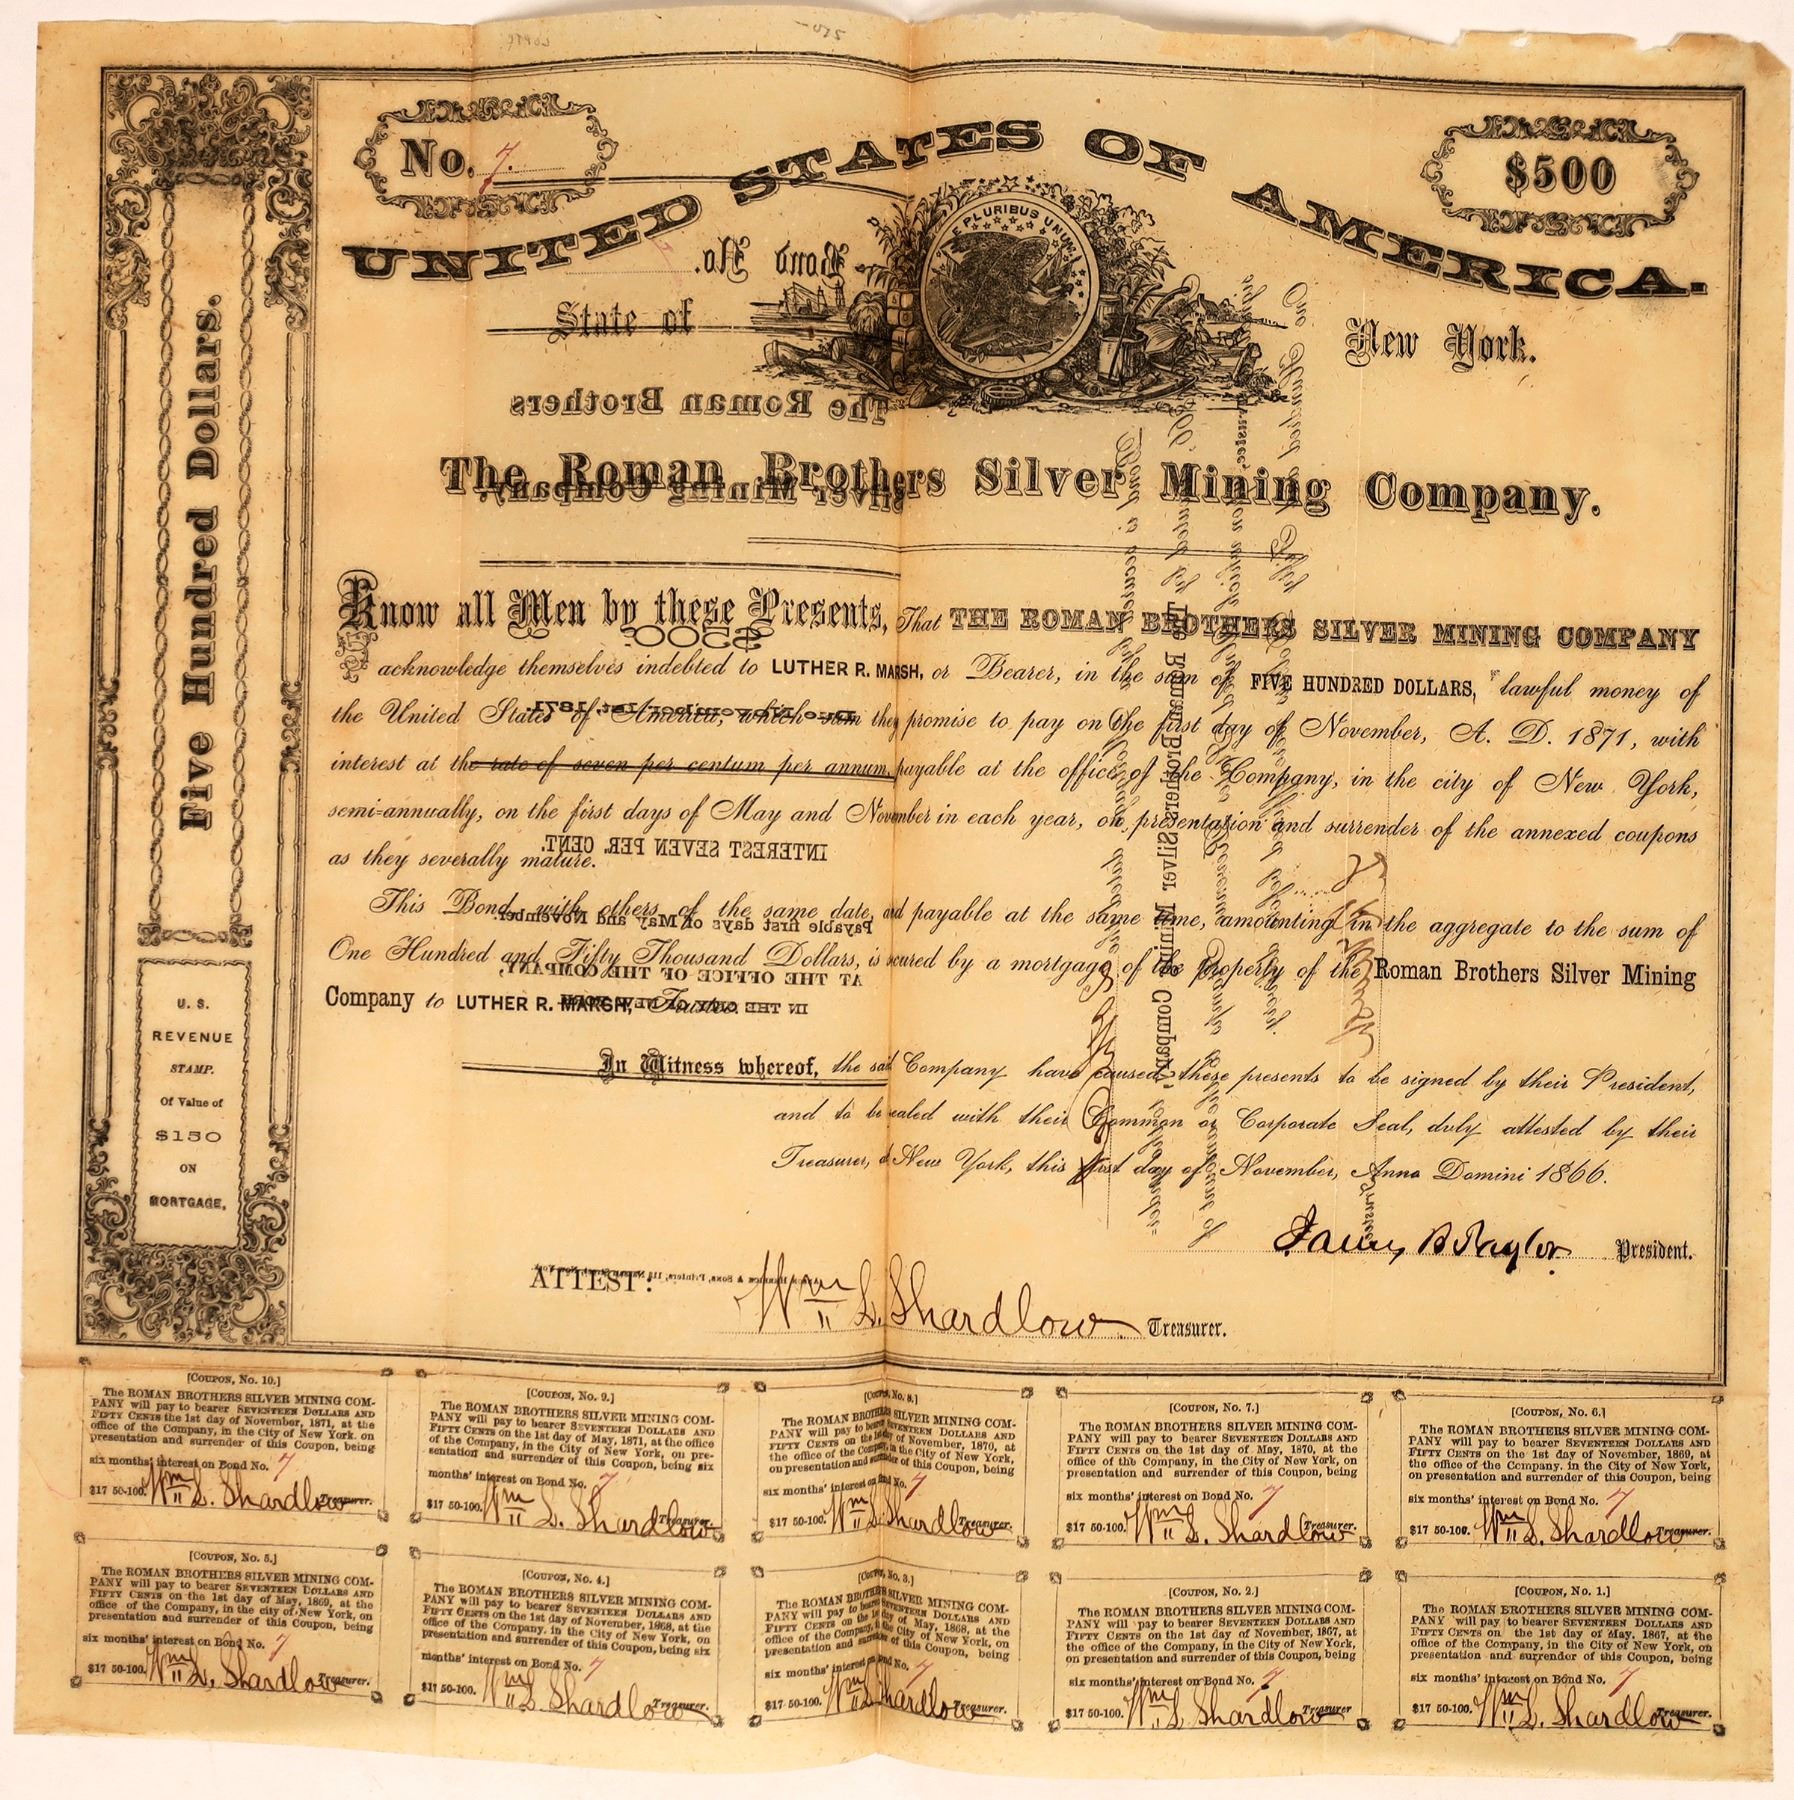 No. 7.
$500
UNITED STATES OF AMERICA.
E PLURIBUS UNUM
Bond No.
State of New York.
The Roman Brothers
The Roman Brothers Silver Mining Company.
Silver Mining Company.
Know all Men by these Presents, That THE ROMAN BROTHERS SILVER MINING COMPANY
$500.
acknowledge themselves indebted to LUTHER R. MARSH, or Bearer, in the sum of FIVE HUNDRED DOLLARS, lawful money of
the United States of America, which sum they promise to pay on the first day of November, A. D. 1871, with
interest at the rate of seven per centum per annum, payable at the office of the Company, in the city of New York,
semi-annually, on the first days of May and November in each year, on presentation and surrender of the annexed coupons
as they severally mature.
INTEREST SEVEN PER CENT.
This Bond, with others of the same date, and payable at the same time, amounting in the aggregate to the sum of
Payable first days of May and November.
One Hundred and Fifty Thousand Dollars, is secured by a mortgage of the property of the Roman Brothers Silver Mining
AT THE OFFICE OF THE COMPANY,
Company to LUTHER R. MARSH, Trustee.
IN THE CITY OF NEW YORK.
In Witness whereof, the said Company have caused these presents to be signed by their President,
and to be sealed with their Common or Corporate Seal, duly attested by their
Treasurer, at New York, this first day of November, Anno Domini 1866.
President.
ATTEST:
Wm L. Shardlow Treasurer.
Five Hundred Dollars.
U. S.
REVENUE
STAMP.
Of Value of
$150
ON
MORTGAGE,
[COUPON, No. 10.]
The ROMAN BROTHERS SILVER MINING COM-
PANY will pay to bearer SEVENTEEN DOLLARS AND
FIFTY CENTS the 1st day of November, 1871, at the
office of the Company, in the City of New York. on
presentation and surrender of this Coupon, being
six months' interest on Bond No. 7
$17 50-100. Wm L. Shardlow Treasurer.
[COUPON, No. 9.]
The ROMAN BROTHERS SILVER MINING COM-
PANY will pay to bearer SEVENTEEN DOLLARS AND
FIFTY CENTS on the 1st day of May, 1871, at the office
of the Company, in the City of New York, on pre-
sentation and surrender of this Coupon, being six
months' interest on Bond No. 7
$17 50-100. Wm L. Shardlow Treasurer.
[COUPON, No. 8.]
The ROMAN BROTHERS SILVER MINING COM-
PANY will pay to bearer SEVENTEEN DOLLARS AND
FIFTY CENTS on the 1st day of November, 1870, at
the office of the Company, in the City of New York,
on presentation and surrender of this Coupon, being
six months' interest on Bond No. 7
$17 50-100. Wm L. Shardlow Treasurer.
[COUPON, No. 7.]
The ROMAN BROTHERS SILVER MINING COM-
PANY will pay to bearer SEVENTEEN DOLLARS AND
FIFTY CENTS on the 1st day of May, 1870, at the
office of the Company, in the City of New York, on
presentation and surrender of this Coupon, being
six months' interest on Bond No. 7
$17 50-100. Wm L. Shardlow Treasurer.
[COUPON, No. 6.]
The ROMAN BROTHERS SILVER MINING COM-
PANY will pay to bearer SEVENTEEN DOLLARS AND
FIFTY CENTS on the 1st day of November, 1869, at
the office of the Company. in the City of New York,
on presentation and surrender of this Coupon, being
six months' interest on Bond No. 7
$17 50-100. Wm L. Shardlow Treasurer.
[COUPON, No. 5.]
The ROMAN BROTHERS SILVER MINING COM-
PANY will pay to bearer SEVENTEEN DOLLARS AND
FIFTY CENTS on the 1st day of May, 1869, at the
office of the Company, in the city of New York, on
presentation and surrender of this Coupon, being
six months' interest on Bond No. 7
$17 50-100. Wm L. Shardlow Treasurer.
[COUPON, No. 4.]
The ROMAN BROTHERS SILVER MINING COM-
PANY will pay to bearer SEVENTEEN DOLLARS AND
FIFTY CENTS on the 1st day of November, 1868, at the
office of the Company. in the City of New York, on
presentation and surrender of this Coupon, being six
months' interest on Bond No. 7
$17 50-100. Wm L. Shardlow Treasurer.
[COUPON, No. 3.]
The ROMAN BROTHERS SILVER MINING COM-
PANY will pay to bearer SEVENTEEN DOLLARS AND
FIFTY CENTS on the 1st day of May, 1868, at the
office of the Company, in the City of New York, on
presentation and surrender of this Coupon, being
six months' interest on Bond No. 7
$17 50-100. Wm L. Shardlow Treasurer.
[COUPON, No. 2.]
The ROMAN BROTHERS SILVER MINING COM-
PANY will pay to bearer SEVENTEEN DOLLARS AND
FIFTY CENTS on the 1st day of November, 1867, at
the office of the Company, in the City of New York,
on presentation and surrender of this Coupon, being
six months' interest on Bond No. 7
$17 50-100. Wm L. Shardlow Treasurer.
[COUPON, No. 1.]
The ROMAN BROTHERS SILVER MINING COM-
PANY will pay to bearer SEVENTEEN DOLLARS AND
FIFTY CENTS on the 1st day of May, 1867, at the
office of the Company, in the City of New York, on
presentation and surrender of this Coupon, being
six months' interest on Bond No. 7
$17 50-100. Wm L. Shardlow Treasurer.